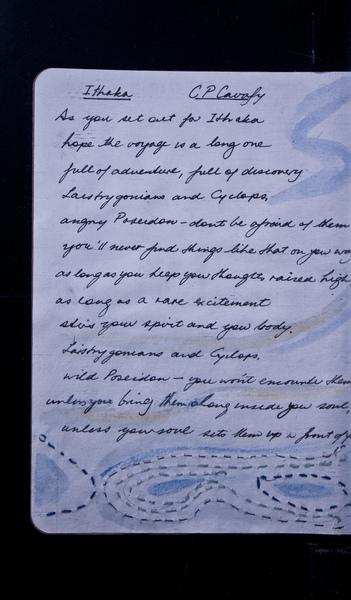 Ithaka C P Cavafy
As you set out for Ithaka
hope the voyage is a long one
full of adventure, full of discovery
Laistrygonians and Cyclops,
angry Poseidon - dont be afraid of them
you'll never find things like that on you way
as long as you keep you thoughts raised high
as long as a rare excitement
stirs your spirit and you body.
Laistrygonians and Cyclops.
wild Poseidon - you wont encounter them
unless you bring them along inside you soul,
unless your soul sets them up in front of